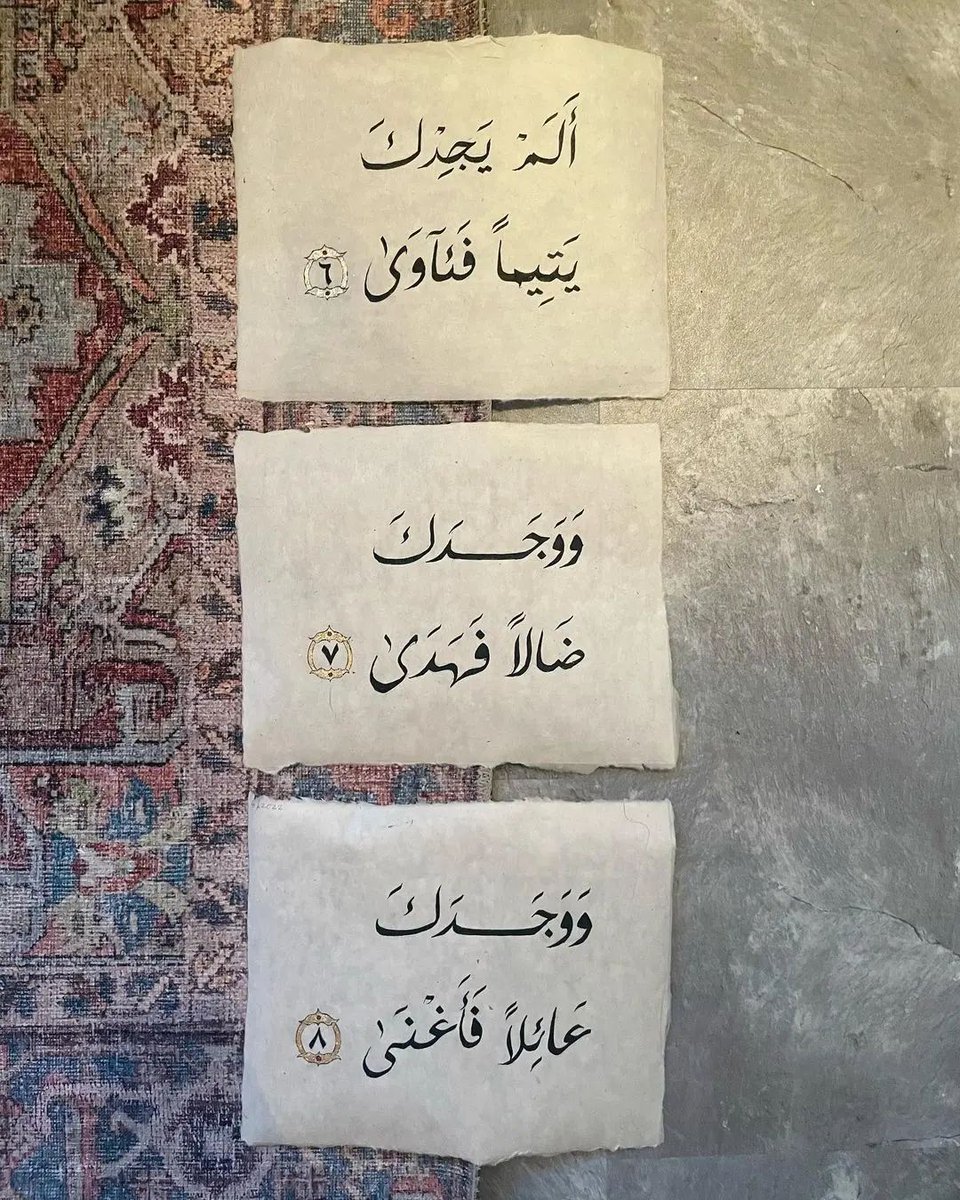 أَلَمْ يَجِدْكَ
يَتِيماً فَـَٔاوَىٰ ٦
وَوَجَـــدَكَ
ضَالاً فَهَدَىٰ ٧
وَوَجَـــدَكَ
عَائِلاً فَأَغْنَىٰ ٨